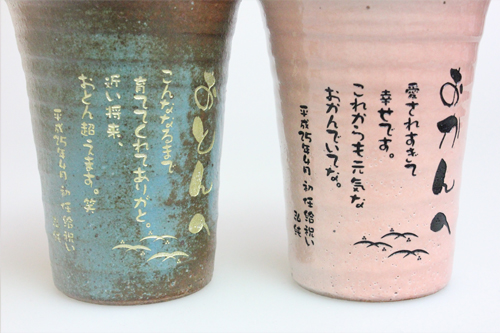 おとんへ
こんなになるまで
育ててくれてありがと。
近い将来、
おとん超えます。笑
平成25年4月 初任給祝い
おかんへ
愛されすぎて
幸せです。
これからも元気な
おかんでいてな。
平成25年4月 初任給祝い